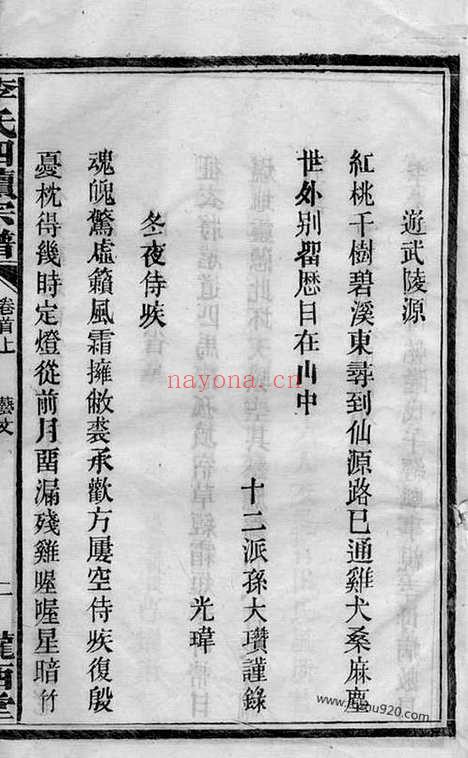 遊武陵源
紅桃千樹碧溪東尋到仙源路已通雞犬桑麻塵
世外别畱歴日在山中
十二派孫大瓚謹錄
冬夜侍疾
光瑋
魂魄驚虛籟風霜擁敝裘承歡方屢空侍疾復殷
憂枕得幾時定燈從前月畱漏殘雞喔喔星暗竹
李氏四續宗譜
卷首上
藝文
二
隴西堂
nayona.cn
www.zhou920.com